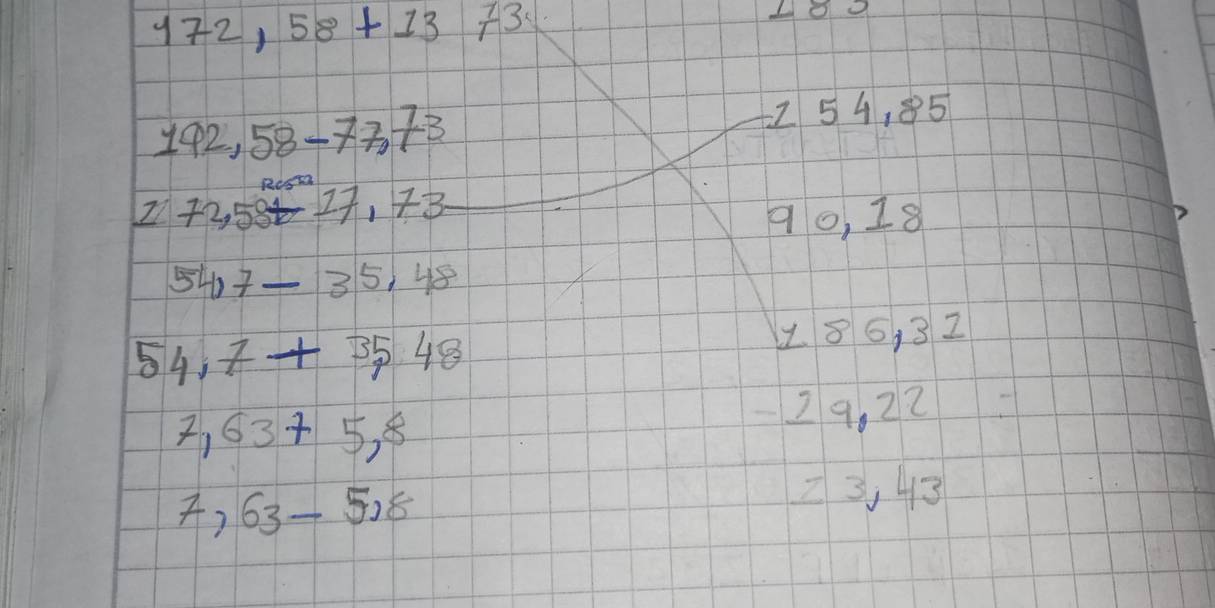 172,58+13 73
1 83
192,58-77,73
154,85
Resta
172,58- 17,73
90,18
54,7- 35,48
186,31
54,7+ 35,48
-19,22 -
7,63+ 5,8
13,43
7,63- 5,8